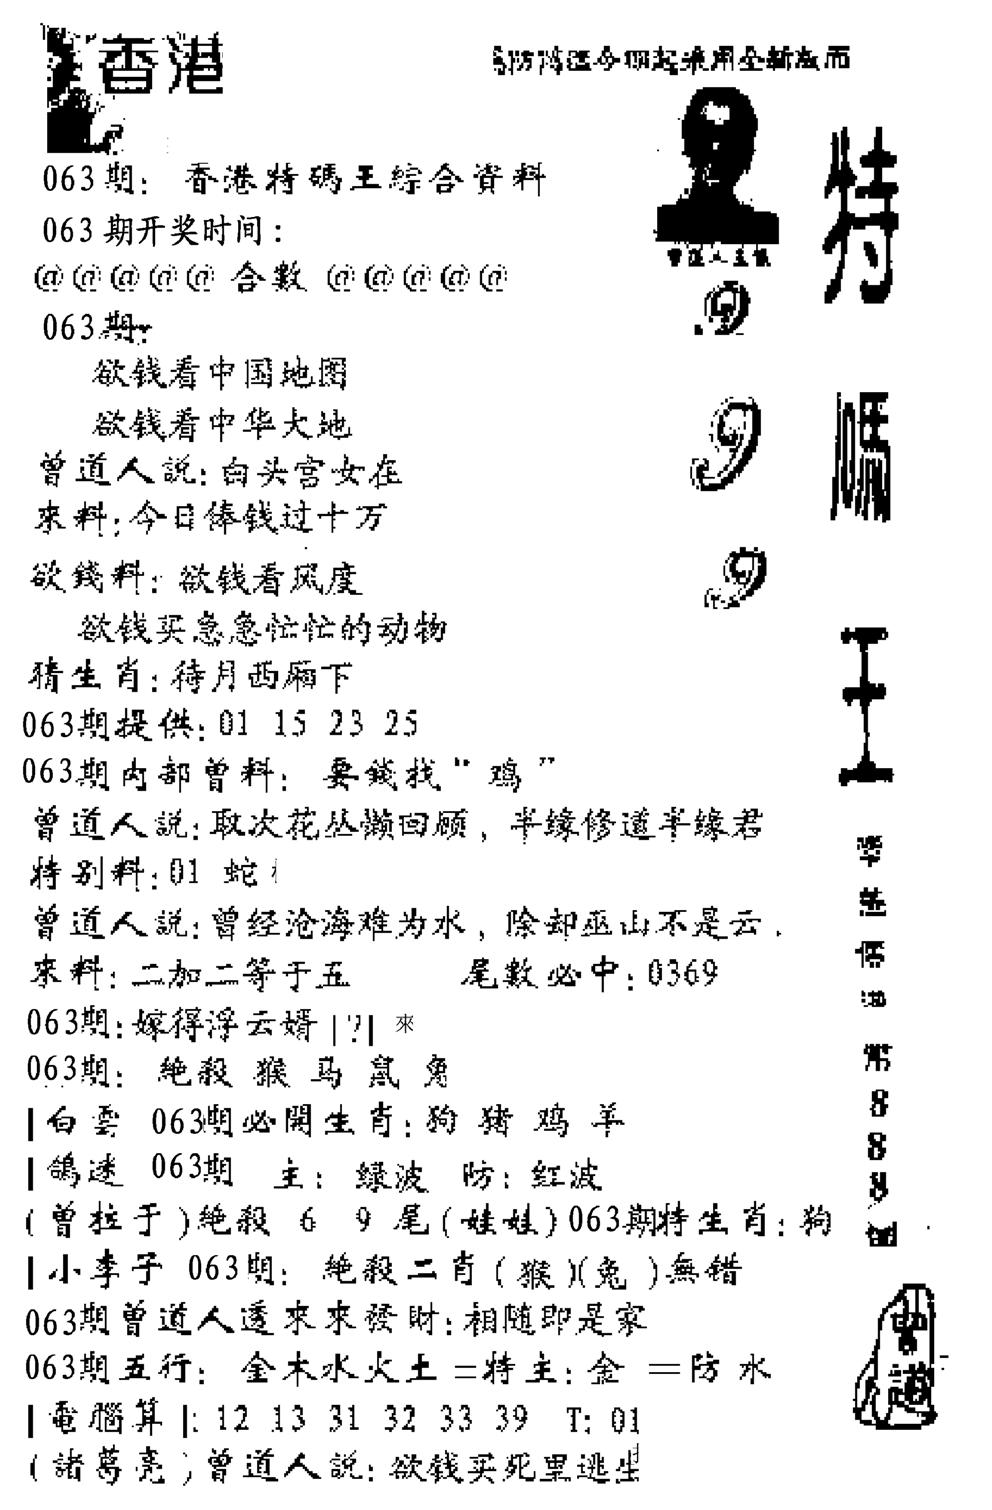 香港
063期: 香港特碼王綜合資料
063期开奖时间:
@@@@@ 合數 @@@@@
063期:
欲钱看中国地图
欲钱看中华大地
曾道人説:白头宫女在
來料:今日俸钱过十万
欲錢料: 欲钱看风度
欲钱买急急忙忙的动物
猜生肖:待月西厢下
063期提供:01 15 23 25
063期内部曾料: 要錢找"鸡"
曾道人説:取次花丛懒回顾, 半缘修道半缘君
特别料:01 蛇
曾道人説:曾经沧海难为水, 除却巫山不是云.
來料:二加二等于五 尾數必中:0369
063期:嫁得浮云婿|?| 來
063期: 绝殺 猴 马 鼠 兔
|白雲 063期必開生肖:狗 猪 鸡 羊
|鴿迷 063期 主: 绿波 防: 红波
(曾拉于)绝殺 6 9 尾(娃娃)063期特生肖:狗
|小李子 063期: 绝殺二肖(猴)(兔)無错
063期曾道人透來來發財:相随即是家
063期五行: 金木水火土=特主:金 =防水
|電腦算|:12 13 31 32 33 39 T:01
(諸葛亮)曾道人説:欲钱买死里逃生
曾道人
9
9
9
特
碼
王
港
第
8
8
8
曾道